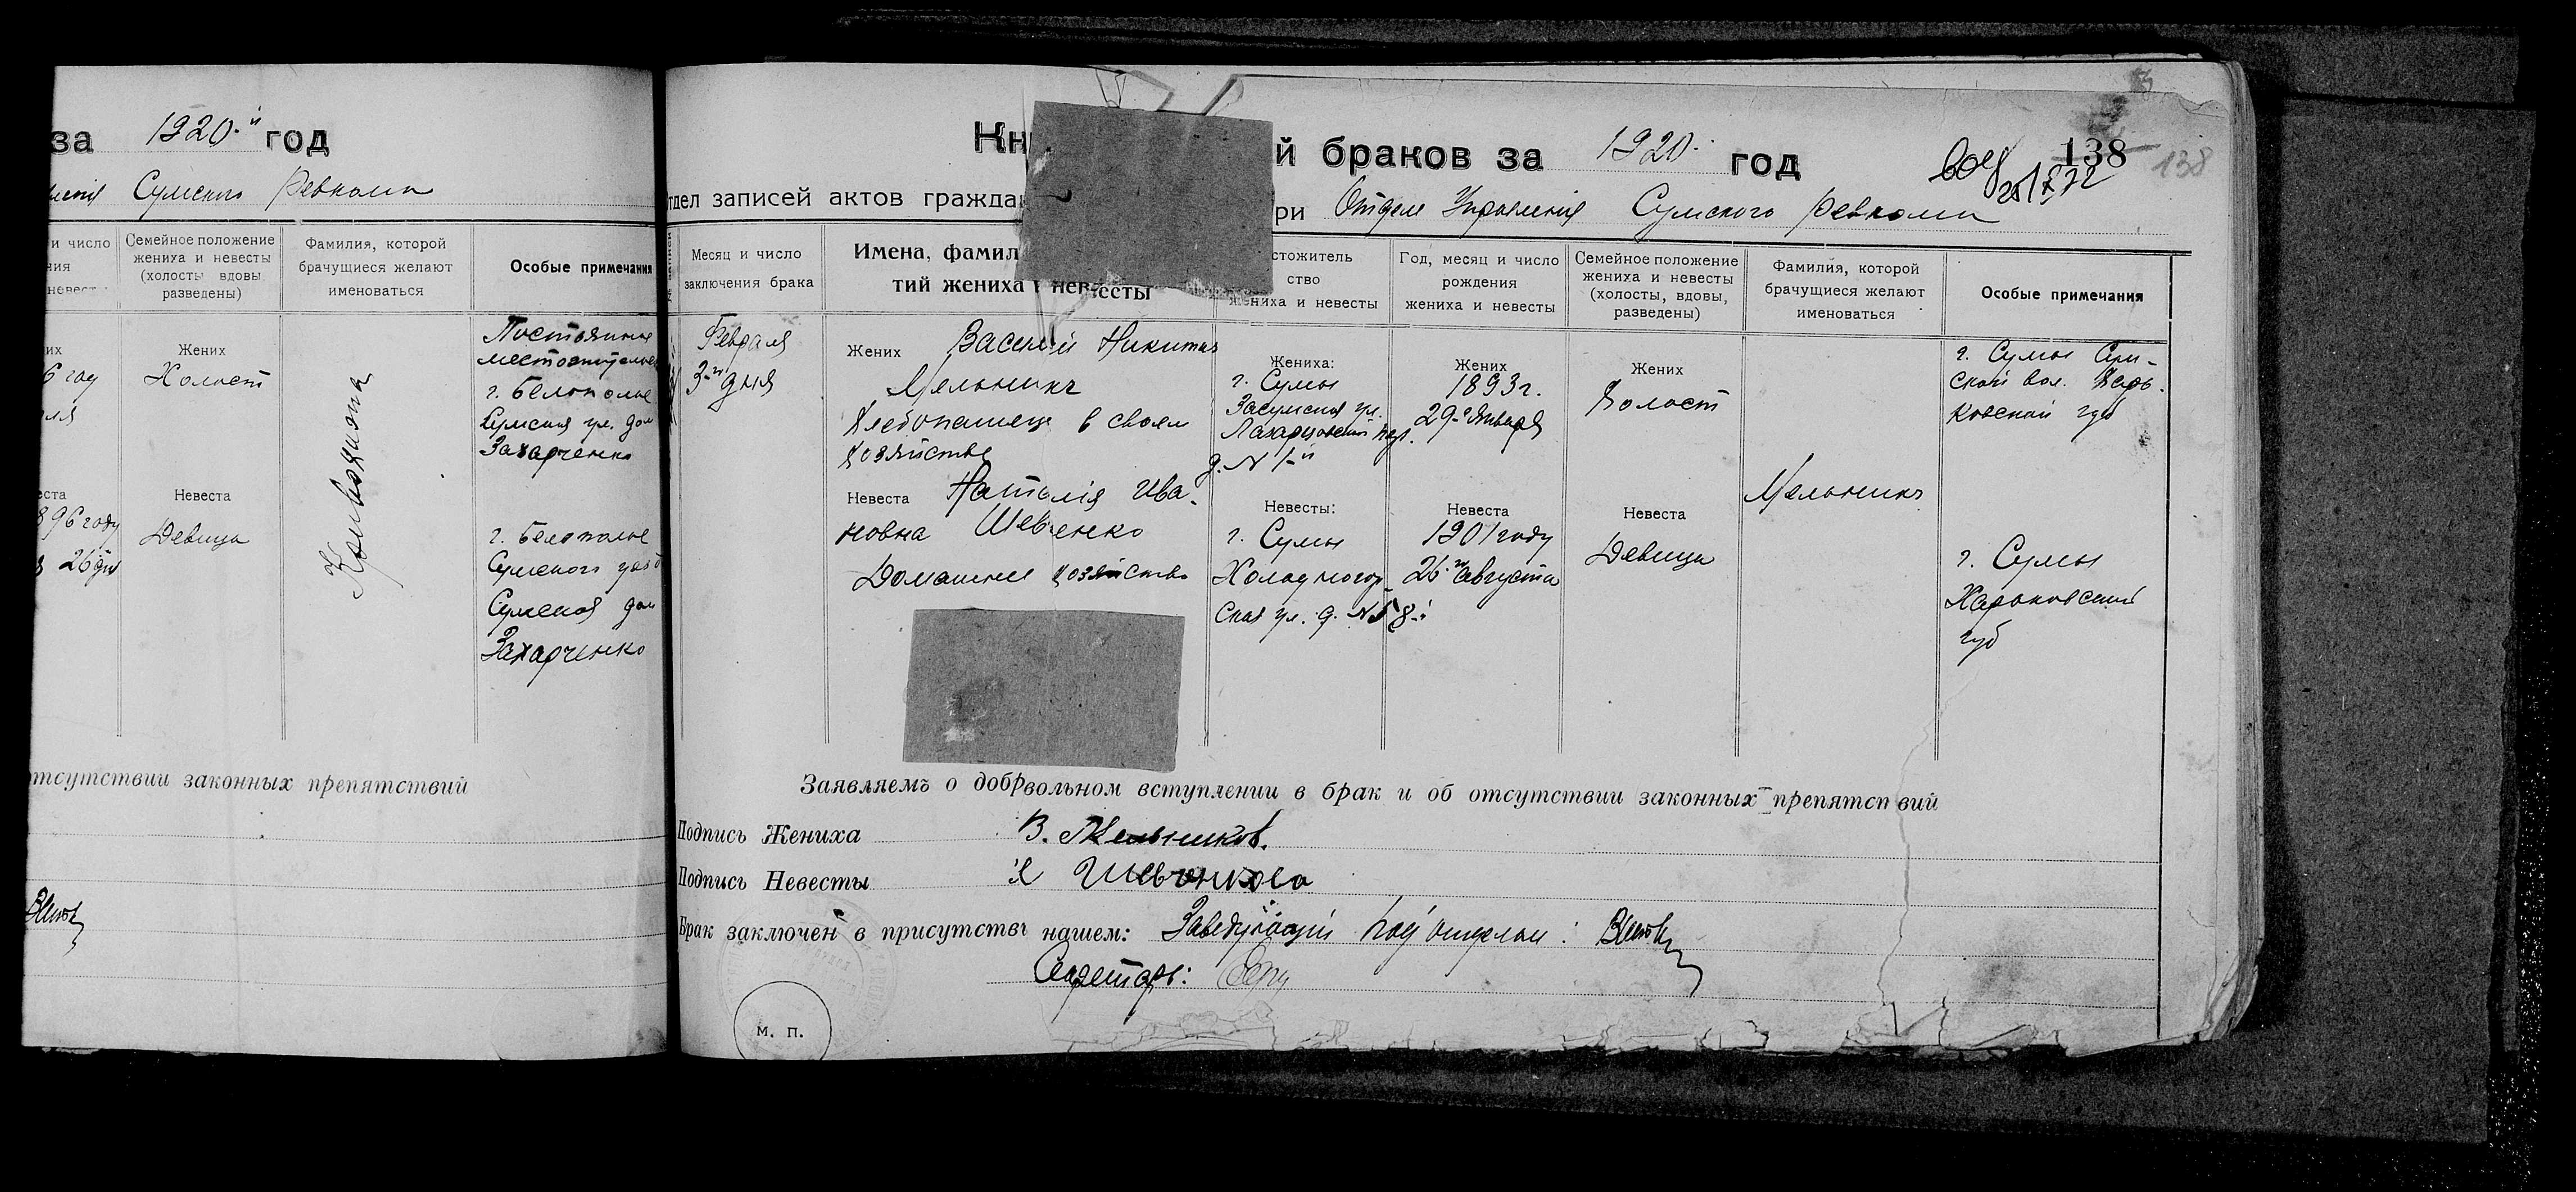 за 1920.й год
Сумского Ревкома
и число
Семейное положение
жениха и невесты
(холосты вдовы
разведены)
Фамилия, которой
брачущиеся желают
именоваться
Особые примечания
Жених
Холост
6 году
Постоянное
г. Белополье
Сумская ул. дом
Захарченко
Невеста
896 году
Девица
26 дня
г. Белополье
Сумского уезд
Сумская дом
Захарченко
отсутствии законных препятствий
Кн й браков за 1920. год
138
138
отдел записей актов граждан ри Отделе Управления Сумского Ревкома
Месяц и число
заключения брака
Имена, фамил
тий жениха и невесты
стожитель
ство
жениха и невесты
Год, месяц и число
рождения
жениха и невесты
Семейное положение
жениха и невесты
(холосты, вдовы,
разведены)
Фамилия, которой
брачущиеся желают
именоваться
Особые примечания
Февраля
3-го дня
Жених Василий Никитич
Мельникъ
Хлебопашец в своем
хозяйстве
Жениха:
г. Сумы
Засумская ул.
д. N 1-й
Жених
1893 г.
29-го Января
Жених
Холост
г. Сумы Сум-
ской вол. Харь-
ковской губ
Невеста Наталія Ива-
новна Шевченко
Домашнее хозяйство
Невесты:
г. Сумы
Холодногор-
ская ул. д. N 58.
Невеста
1901 году
26-го Августа
Невеста
Девица
Мельникъ
г. Сумы
Харьковский
губ
Заявляемъ о добрвольном вступлении в брак и об отсутствии законных препятствий
Подпись Жениха В. Мельников.
Подпись Невесты Н Шевченкова
Брак заключен в присутстви нашем: Заведующий подотделом:
Секретарь:
м. п.